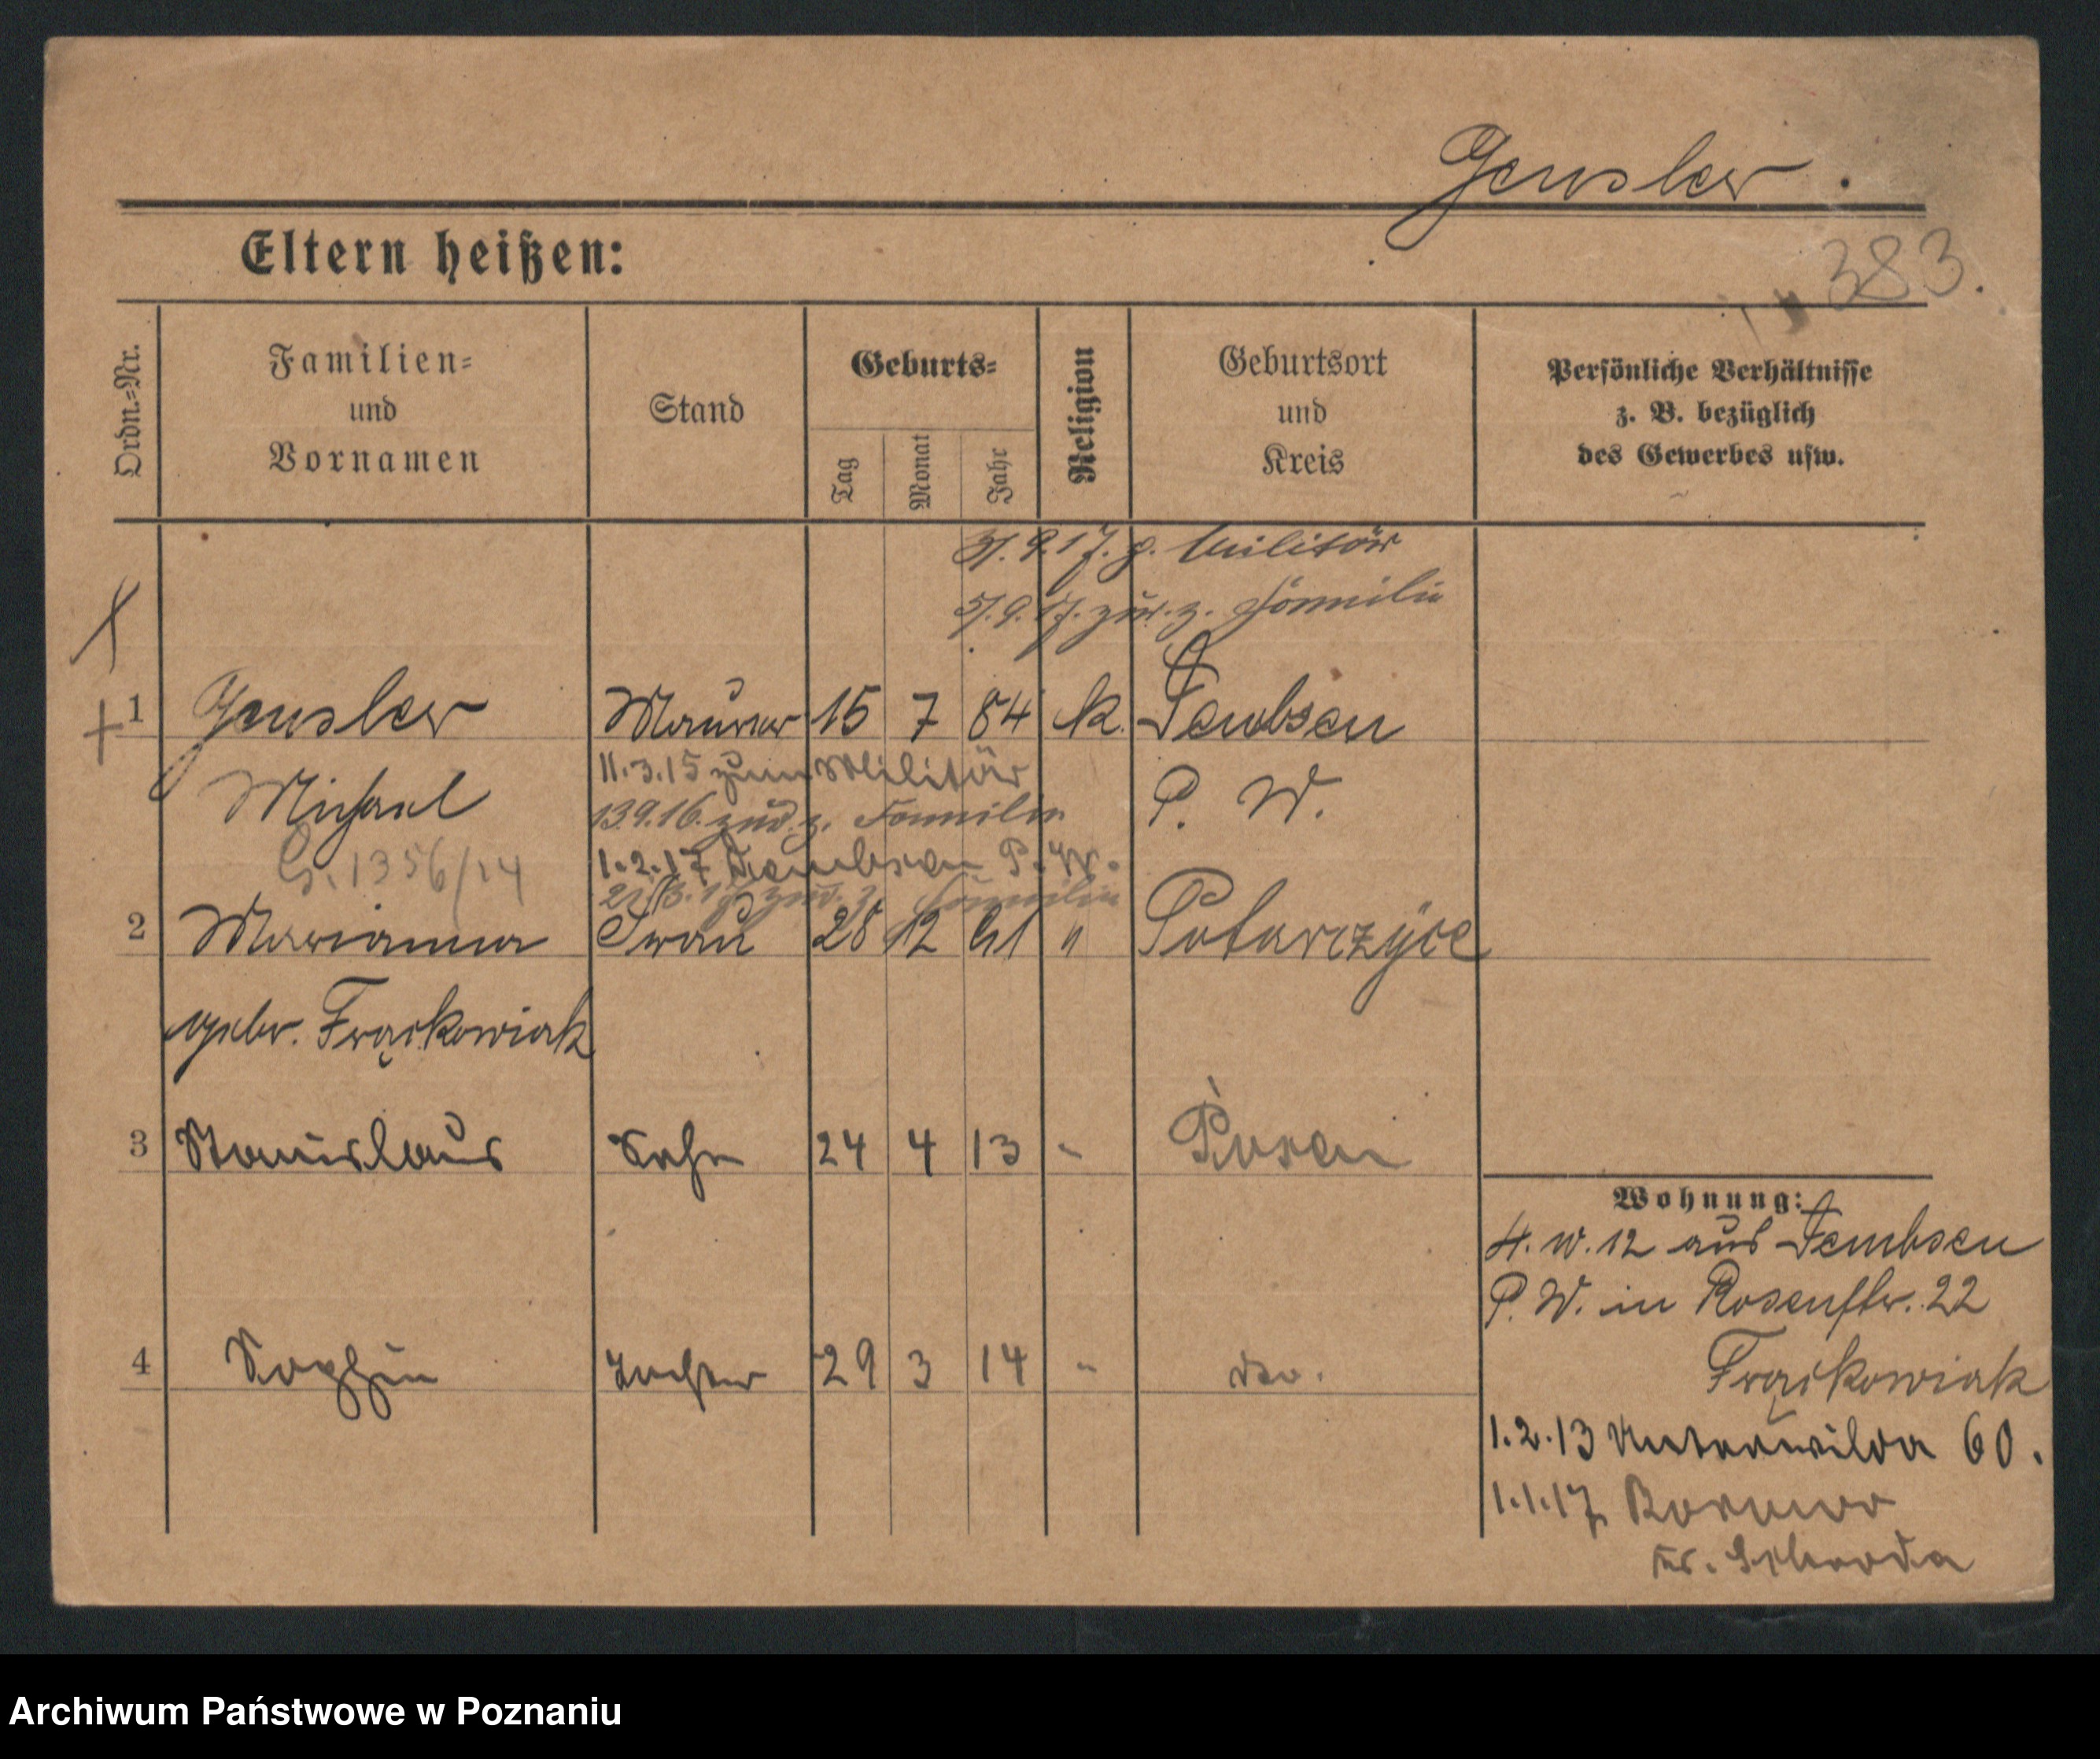 Gensler
383.
Eltern heißen:
Ordn.-Nr.
Familien-
und
Vornamen
Stand
Geburts-
Tag
Monat
Jahr
Religion
Geburtsort
und
Kreis
Persönliche Verhältnisse
z. B. bezüglich
des Gewerbes usw.
9.17. z. Militär
5/.9.17. zur. z. Familie
1 Gensler Maurer 15 7 84 k. Dembsen
11.3.15 zum Militär
Michael P. W.
13.9.16. zur. z. Familie
1356/14
1.2.17 Dembsen P. W.
17. zur. z. Familie
2 Marianna Frau 28 12 91 " Potarczyce
gebr. Frąckowiak
3 Stanislaus Sohn 24 4 13 - Posen
4 Sophie Tochter 29 3 14 - do.
Wohnung:
4. 10. 12 aus Dembsen
P. W. in Rosenstr. 22
Frąckowiak
1.2.13 Unterwilda 60.
1.1.17
Kr. Schroda
Archiwum Państwowe w Poznaniu